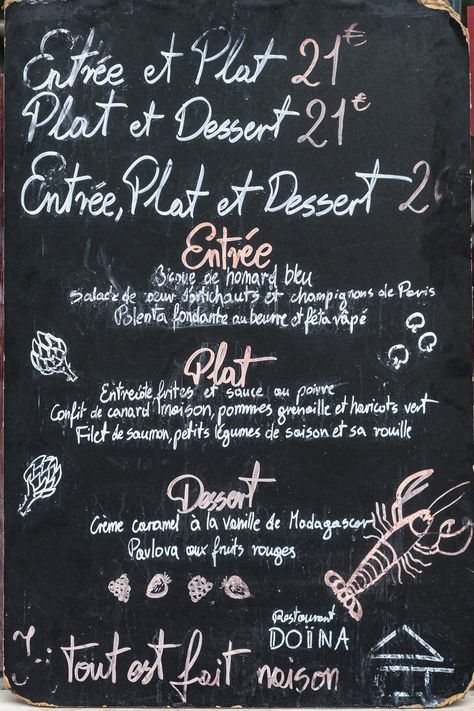 Entrée et Plat 21€
Plat et Dessert 21€
Entrée, Plat et Dessert 2
Entrée
Bisque de homard bleu
Salade de cœur d'artichauts et champignons de Paris
Polenta fondante au beurre et féta râpé
Plat
Entrecôte, frites et sauce au poivre
Confit de canard maison, pommes grenaille et haricots vert
Filet de saumon, petits légumes de saison et sa rouille
Dessert
Crème caramel à la vanille de Madagascar
Pavlova aux fruits rouges
Restaurant
DOÏNA
Ici tout est fait maison